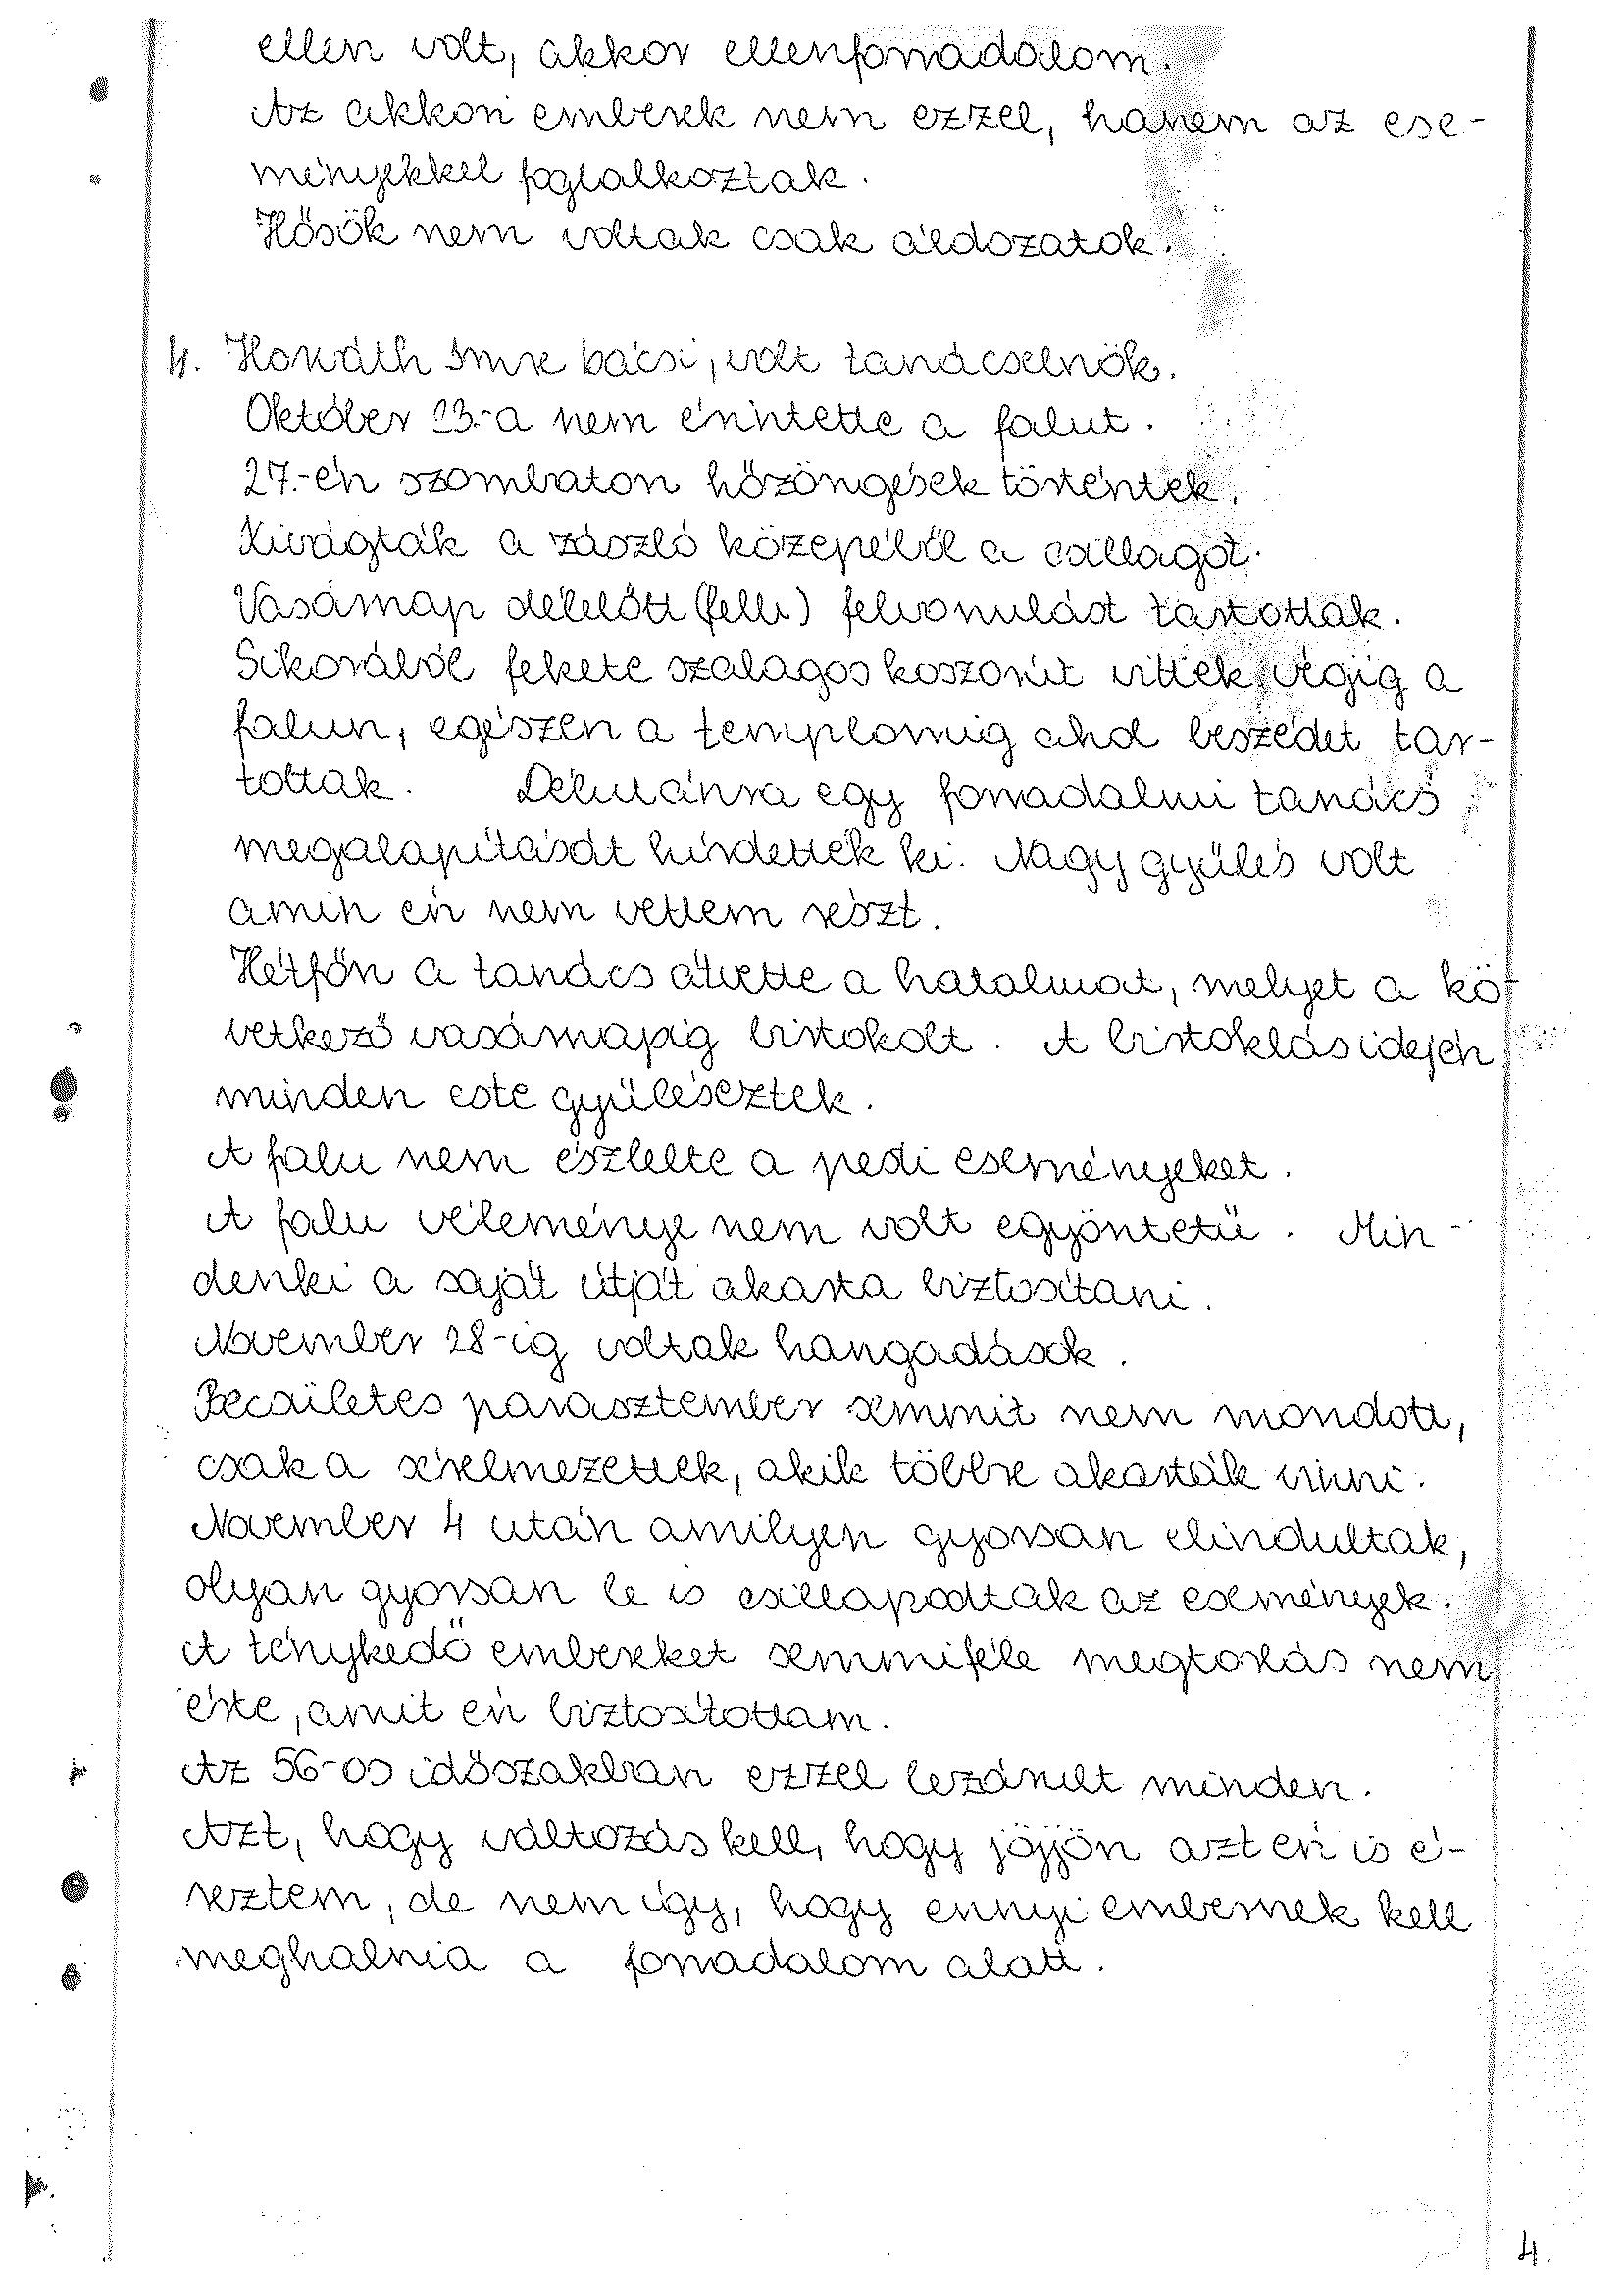 ellen volt, akkor ellenforradalom.
Az akkori emberek nem ezzel, hanem az ese-
ményekkel foglalkoztak.
Hősök nem voltak csak áldozatok.
4. Horváth Imre bácsi, volt tanácselnök.
Október 23.-a nem érintette a falut.
27.-én szombaton hőzöngések történtek.
Kivágták a zászló közepéből a csillagot.
Vasárnap délelőtt (felh) felvonulást tartottak.
Sikorából fekete szalagos koszorút vittek végig a
falun, egészen a templomig ahol beszédet tar-
tottak. Délutánra egy forradalmi tanács
megalapítását hirdették ki. Nagy gyűlés volt
amin én nem vettem részt.
Hétfőn a tanács átvette a hatalmat, melyet a kö-
vetkező vasárnapig birtokolt. A birtoklás idején
minden este gyűléseztek.
A falu nem észlelte a pesti eseményeket.
A falu véleménye nem volt egyöntetű. Min-
denki a saját útját akarta biztosítani.
November 28-ig voltak hangadások.
Becsületes parasztember semmit nem mondott,
csak a sérelmezettek, akik többre akarták vinni.
November 4 után amilyen gyorsan elindultak,
olyan gyorsan le is csillapodtak az események.
A ténykedő embereket semmiféle megtorlás nem
érte, amit én biztosítottam.
Az 56-os időszakban ezzel lezárult minden.
Azt, hogy változás kell, hogy jöjjön azt én is é-
reztem, de nem így, hogy ennyi embernek kell
meghalnia a forradalom alatt.
4.